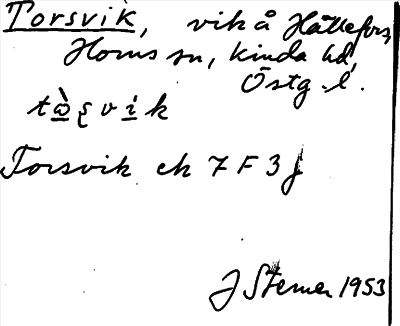 Torsvik, vik å Hällefors,
Horns sn, Kinda hd,
Östg. l.
tὼʂvik
Torsvik ek 7 F 3 j
J Sterner 1953